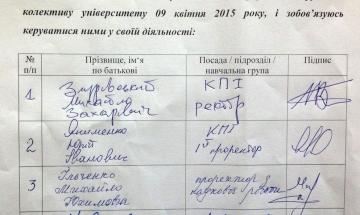 колективу університету 09 квітня 2015 року, і зобов'язуюсь
керуватися ними у своїй діяльності:
№ п/п
Прізвище, ім'я по батькові
Посада / підрозділ / навчальна група
Підпис
1
Згуровський
Михайло
Захарович
КПІ
ректор
2
Якименко
Юрій
Іванович
КПІ
1й проректор
3
Ільченко
Михайло
Юхимович
проректор з
наукової роботи